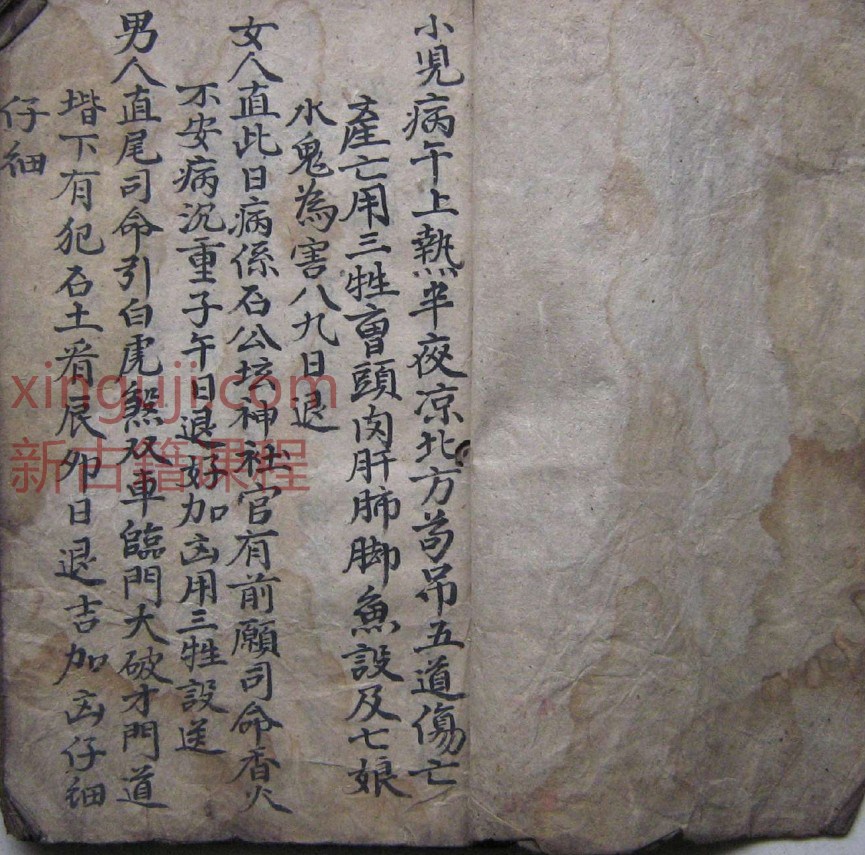 小児病午上熱半夜凉北方苟吊五道傷亡
產亡用三牲曺頭肉肝肺脚魚設及七娘
水鬼為害八九日退
女人直此日病係石公坛神社官有前願司命香火
不安病沉重子午日退好加凶用三牲設送
男人直尾司命引白虎煞双車臨門大破才門道
堦下有犯石土看辰卯日退吉加凶仔細
仔細
xinguji.com
新古籍课程